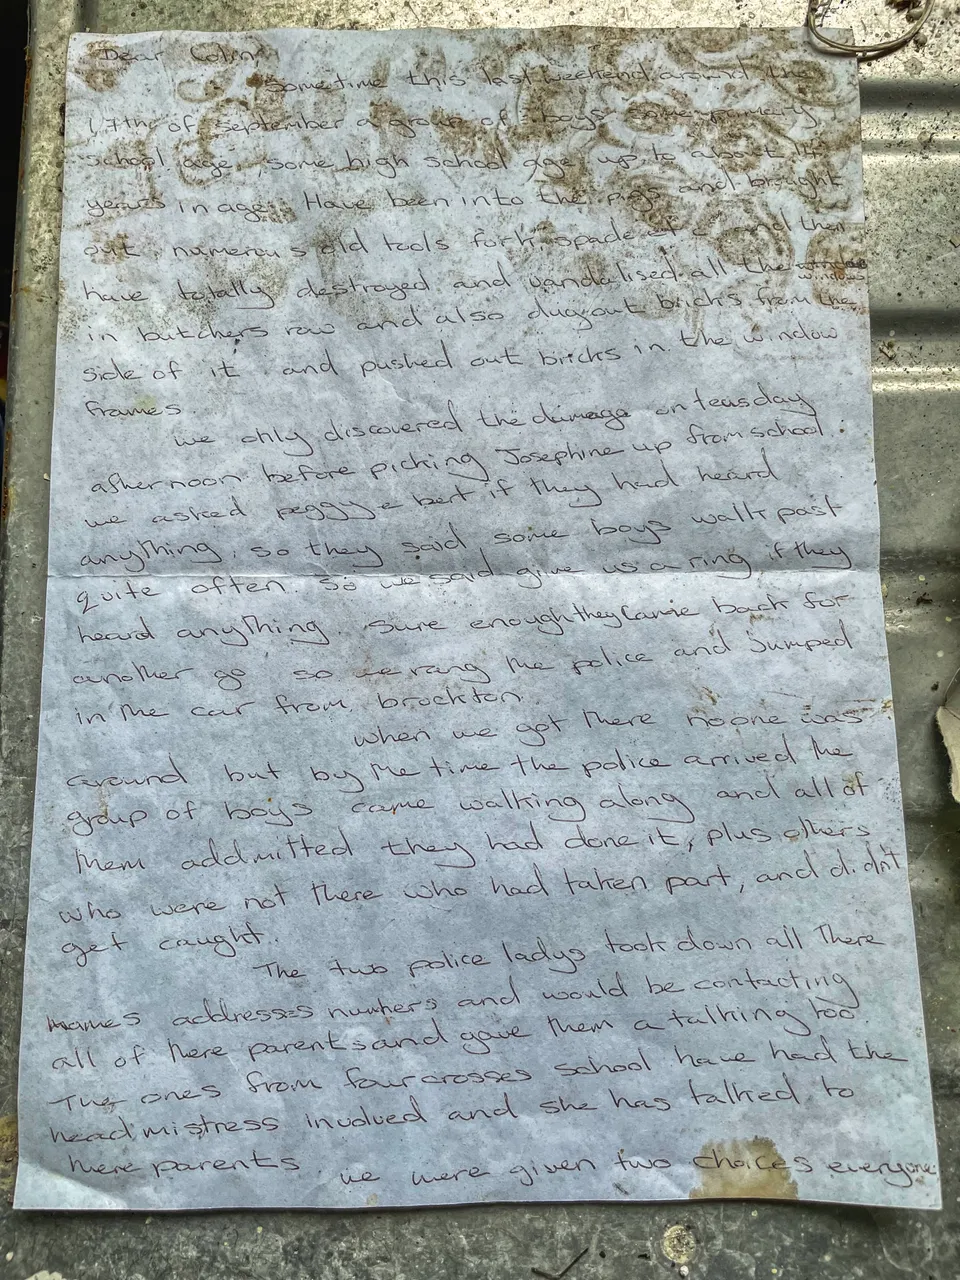 Dear Colin,
Sometime this last weekend around the
17th of September a group of boys some primary
school age, some high school age up to about 14
years in age. Have been into the pigs and brought
out numerous old tools fork, spade and then
have totally destroyed and vandalised all the window
in butchers row and also dug out bricks from the
side of it and pushed out bricks in the window
frames.
we only discovered the damage on teusday
afternoon before picking Josephine up from school
we asked peggy & bert if they had heard
anything, so they said some boys walk past
quite often. so we said give us a ring if they
heard anything. Sure enough they came back for
another go so we rang the police and jumped
in the car from brockton.
when we got there noone was
around but by the time the police arrived the
group of boys came walking along and all of
them addmitted they had done it, plus others
who were not there who had taken part, and didn't
get caught.
The two police ladys took down all there
names addresses numbers and would be contacting
all of there parents and gave them a talking too.
The ones from fourcrosses school have had the
headmistress involved and she has talked to
there parents. we were given two choices everyone